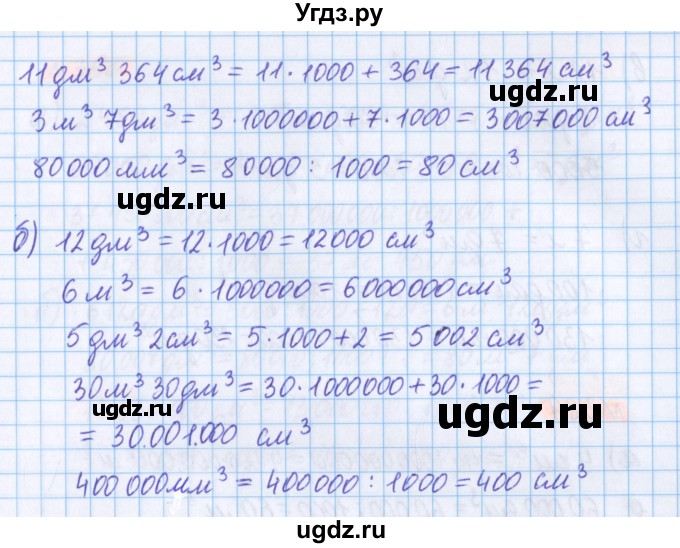 Угдз.ру
11 дм³ 364 см³ = 11·1000 + 364 = 11 364 см³
ugdz.ru
3 м³ 7дм³ = 3·1000000+7·1000 = 3007000 см³
80000 мм³ = 80000 : 1000 = 80 см³
ugdz.ru
б) 12 дм³ = 12·1000 = 12000 см³
6 м³ = 6·1000000 = 6000000 см³
5 дм³ 2см³ = 5·1000+2 = 5 002 см³
30 м³ 30 дм³ = 30·1000000+30·1000 =
ugdz.ru
ugdz.ru
= 30.001.000 см³
400 000 мм³ = 400000 : 1000 = 400 см³
ugdz.ru